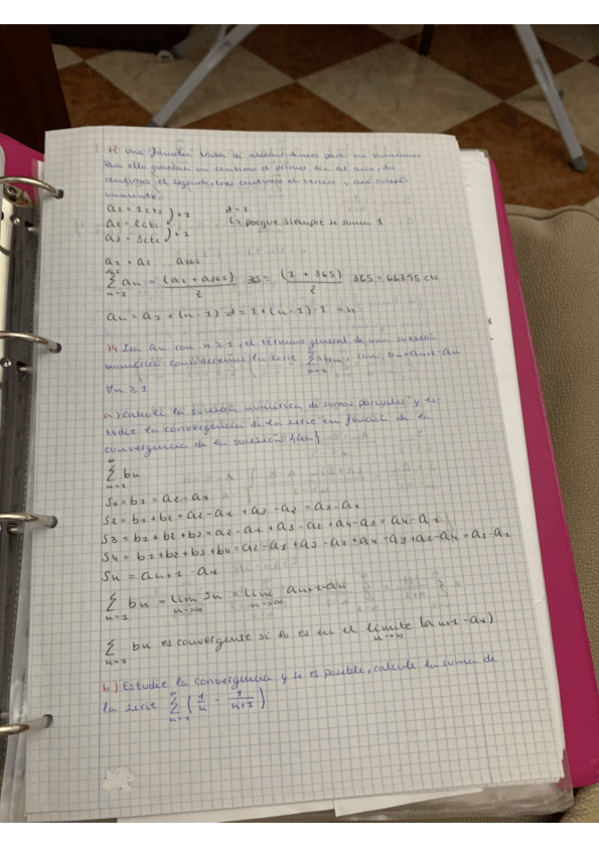 una familia trata de ahorrar dinero para sus vacaciones
Para ello guardan un centimo el primer dia del año, dos
centimos el segundo, tres centimos el tercero y asi sucesi
vamente
a1 = 1cts ) +1 d = 1
a2 = 2cts ) +1 ↳ porque siempre se suma 1
a3 = 3cts
a1 + a2 ... a365
∑ an = (a1 + a365) / 2 · 365 = (1 + 365) / 2 · 365 = 66795 cts
an = a1 + (n-1) · d = 1 + (n-1) · 1 = n
Sea an con n ≥ 1, el término general de una sucesión
numérica consideremos la serie ∑ bn, con bn = an+1 - an
∀n ≥ 1
a.) Calcule la sucesión numérica de sumas parciales y es-
tudie la convergencia de la serie en función de la
convergencia de la sucesión {an}
∑ bn
S1 = b1 = a2 - a1
S2 = b1 + b2 = a2 - a1 + a3 - a2 = a3 - a1
S3 = b1 + b2 + b3 = a2 - a1 + a3 - a2 + a4 - a3 = a4 - a1
S4 = b1 + b2 + b3 + b4 = a2 - a1 + a3 - a2 + a4 - a3 + a5 - a4 = a5 - a1
Sn = an+1 - a1
∑ bn = lim Sn = lim an+1 - an
∑ bn es convergente si lo es en el límite (an+1 - a1)
b.) Estudie la convergencia y si es posible, calcule la suma de
la serie ∑ (1/n - 1/n+1)